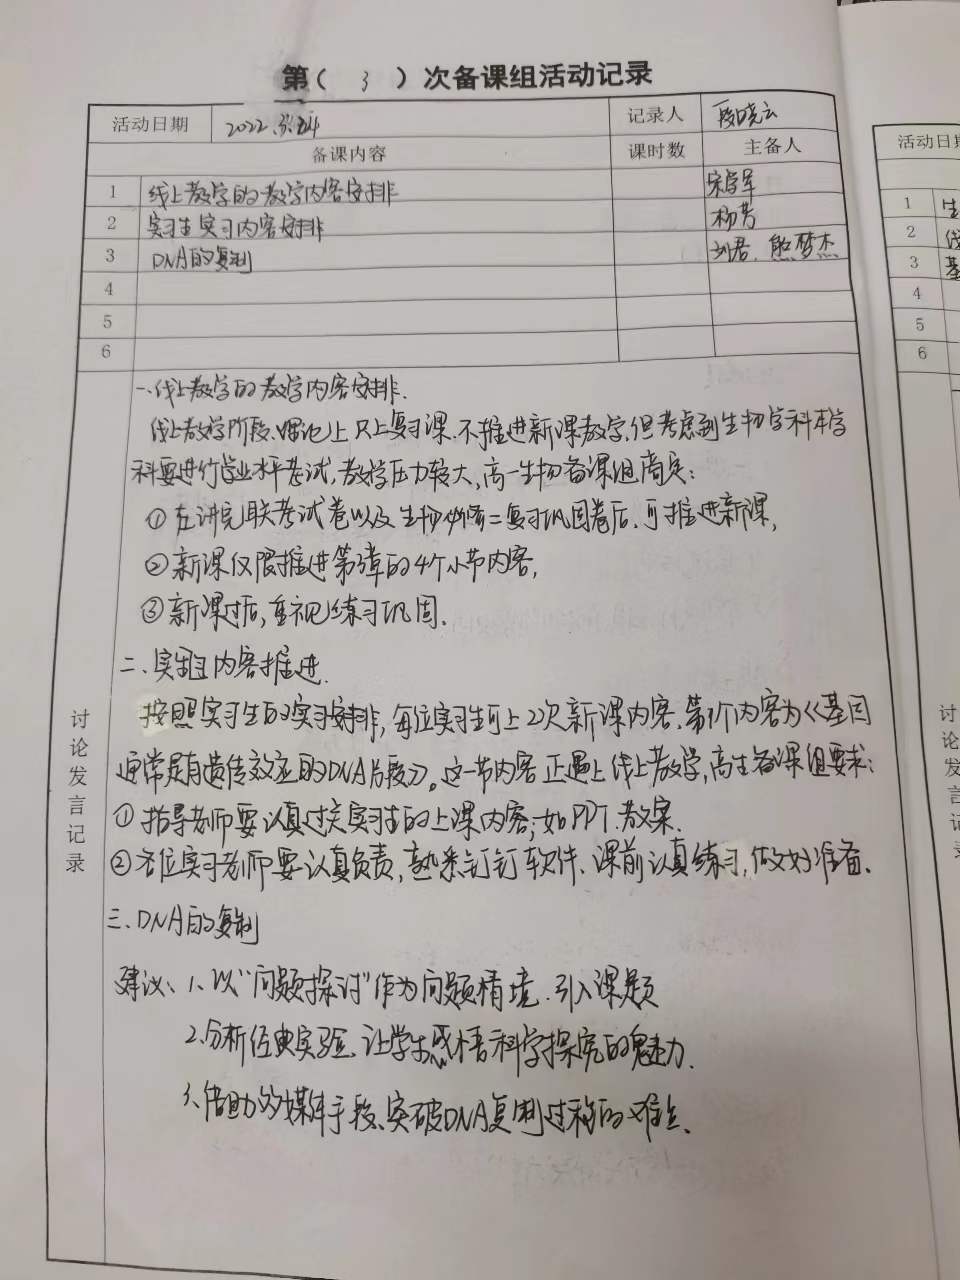 第（ 3 ）次备课组活动记录
活动日期 2022.3.24 记录人 段晓云
备课内容 课时数 主备人
1 线上教学的教学内容安排 宋学军
2 实习生实习内容安排 杨芳
3 DNA的复制 刘君、熊梦杰
4
5
6
讨论发言记录
一、线上教学的教学内容安排.
线上教学阶段,理论上只上复习课.不推进新课教学,但考虑到生物学科本学
科要进行学业水平考试,教学压力较大,高一生物备课组商定:
①在讲完联考试卷以及生物必修二复习巩固卷后,可推进新课,
②新课仅限推进第3章的4个小节内容,
③新课过后,重视练习巩固.
二、实习生内容推进.
按照实习生的实习安排,每位实习生可上2次新课内容.第1个内容为《基因
通常是有遗传效应的DNA片段》。这一节内容正遇上线上教学,高生备课组要求:
①指导老师要认真过关实习生的上课内容;如PPT.教案.
②各位实习老师要认真负责,熟悉钉钉软件、课前认真练习,做好准备、
三、DNA的复制
建议、1、以"问题探讨"作为问题情境.引入课题
2.分析经典实验、让学生感悟科学探究的魅力.
3、借助多媒体手段、突破DNA复制过程的难点、
活动日期
1 生
2
3 基
4
5
6
讨论发言记录